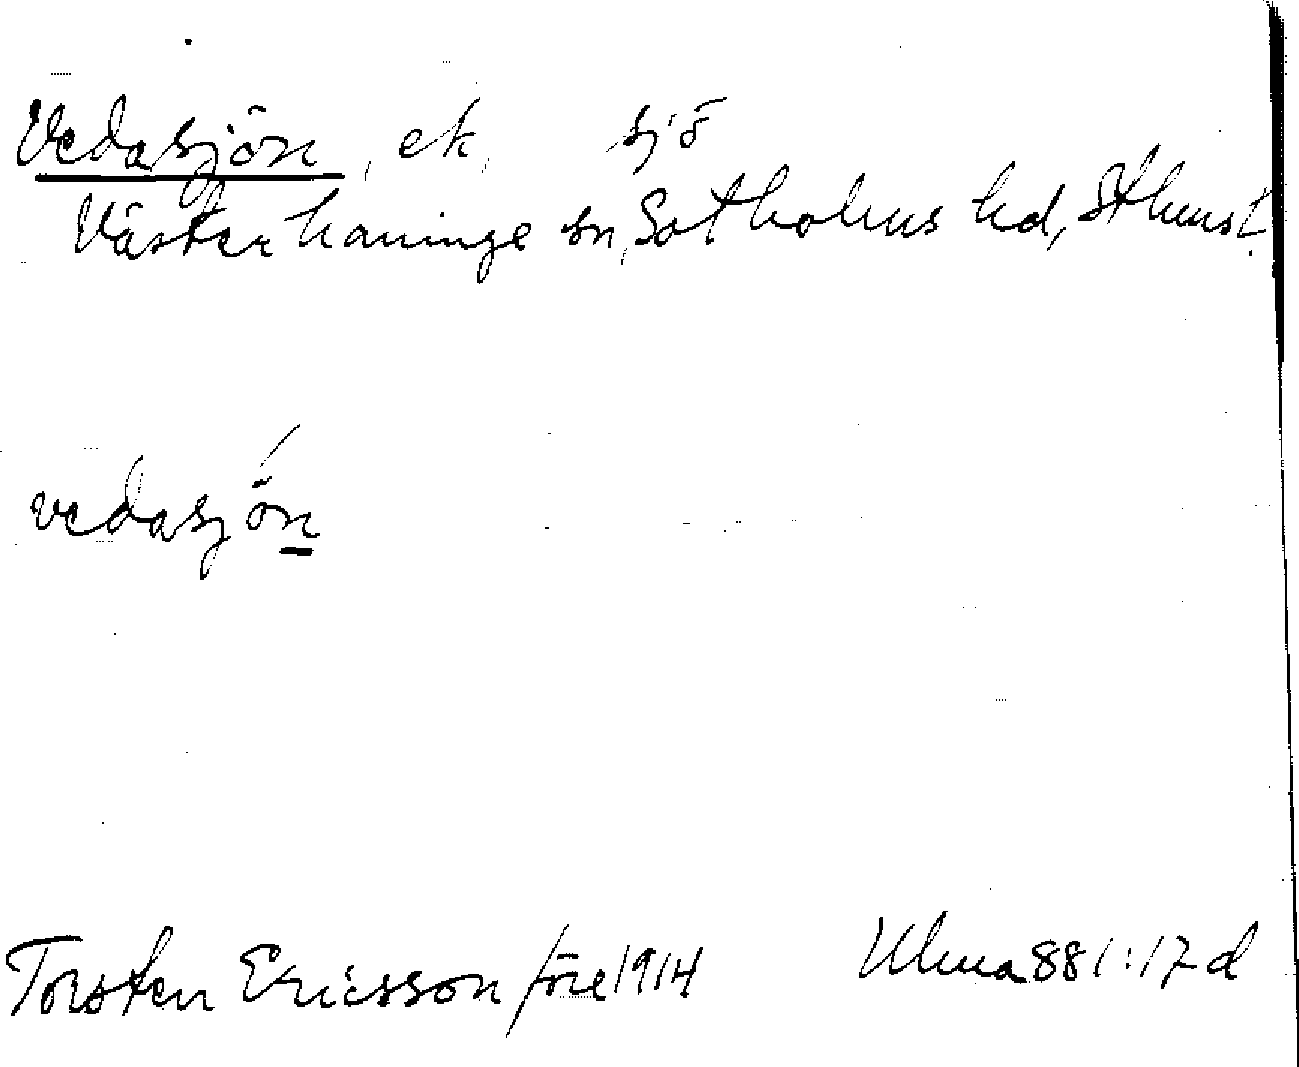 Vedasjön, ek, sjö
Västerhaninge sn, Sotholms hd, Sthmsl.
vedasjön
Torsten Ericsson före 1914 Ulma 881:17 d